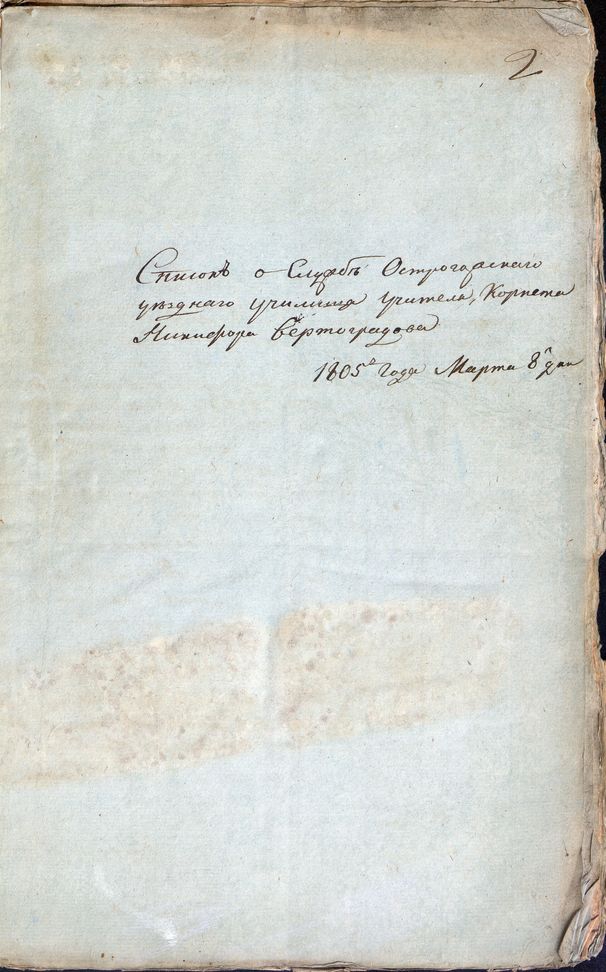 2
Списокъ о Службѣ Острогожскаго
уѣзднаго училища учителя, Корнета
Никифора Вертоградова
1805го года Марта 8 дня